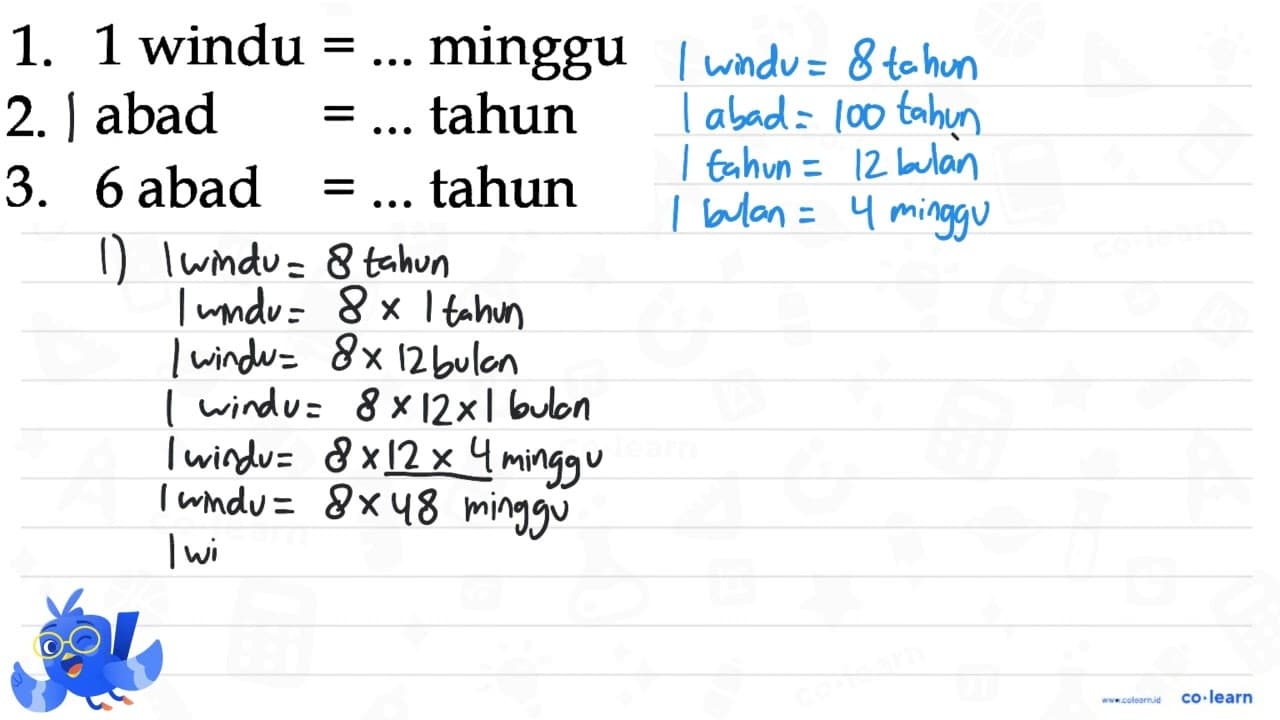 1. 1 windu = ... minggu
2. 1 abad = ... tahun
3. 6 abad = ... tahun
1 windu = 8 tahun
1 abad = 100 tahun
1 tahun = 12 bulan
1 bulan = 4 minggu
1) 1 windu = 8 tahun
1 windu = 8 × 1 tahun
1 windu = 8 × 12 bulan
1 windu = 8 × 12 × 1 bulan
1 windu = 8 × 12 × 4 minggu
1 windu = 8 × 48 minggu
1 wi
www.colearn.id co·learn